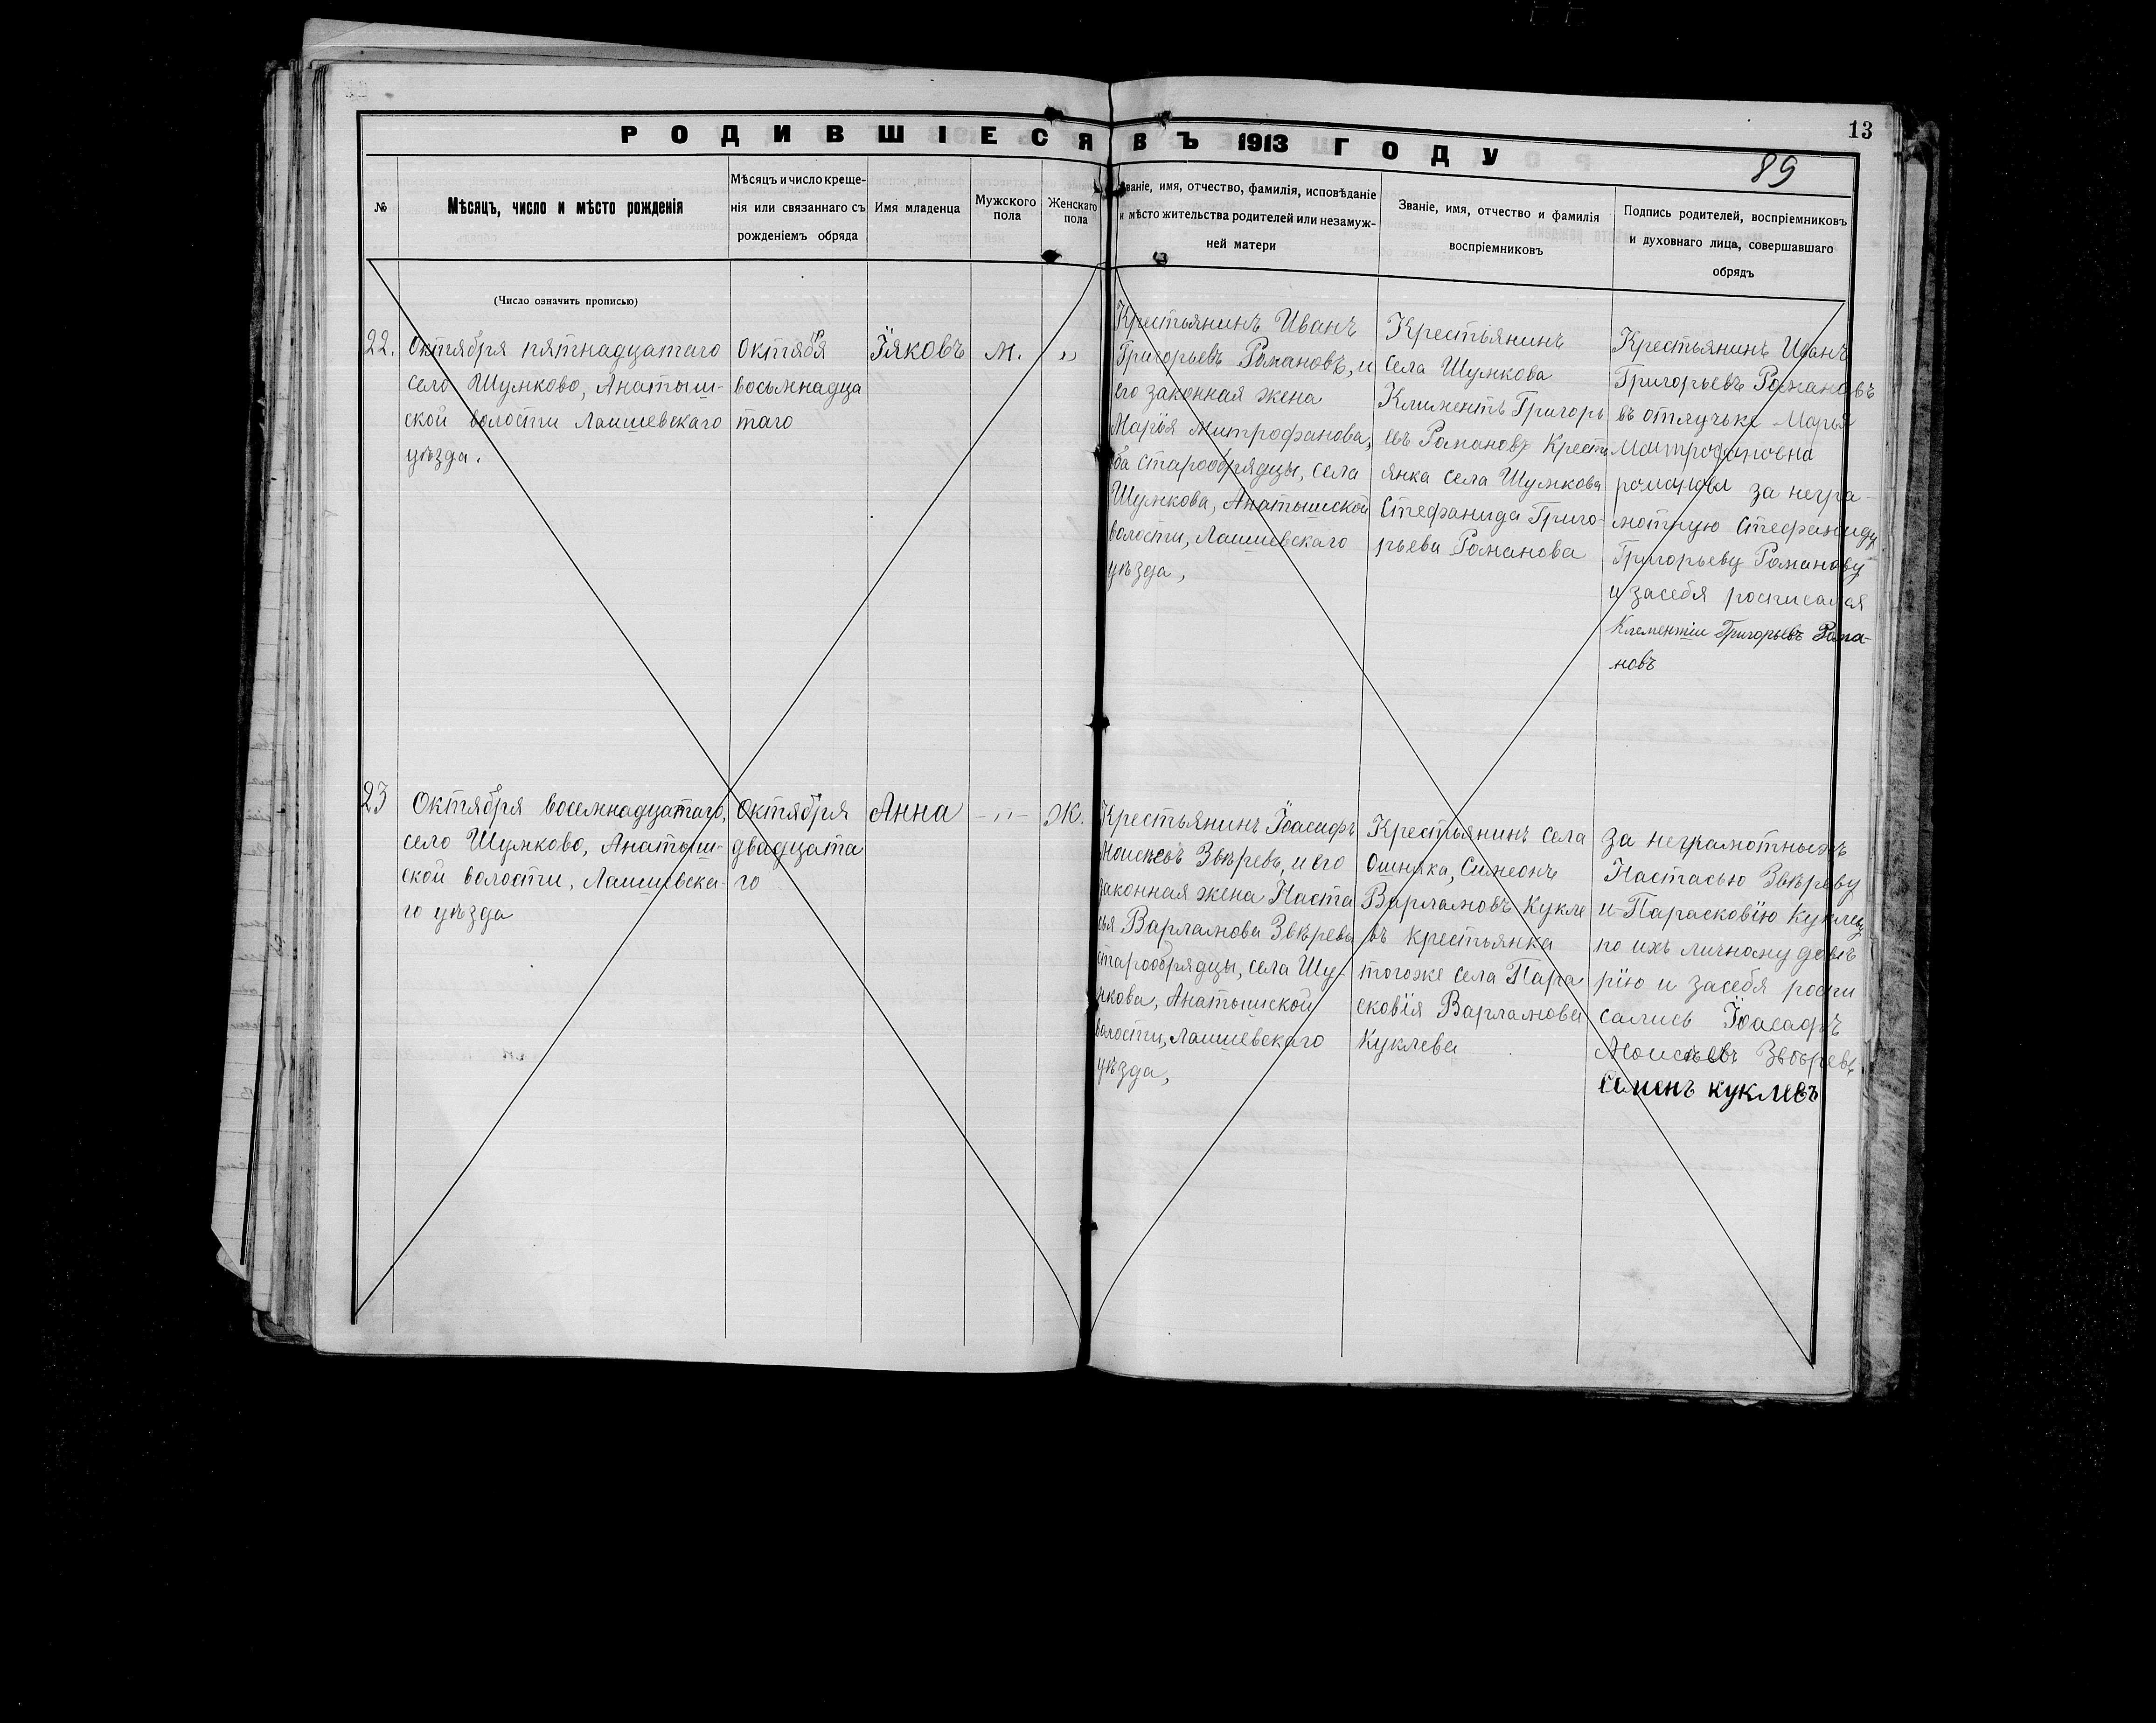 13
РОДИВШІЕСЯ ВЪ 1913 ГОДУ
89
№
Мѣсяцъ, число и мѣсто рожденія
Мѣсяцъ и число креще-
нія или связаннаго съ
рожденіемъ обряда
Имя младенца
Мужского
пола
Женскаго
пола
Званіе, имя, отчество, фамилія, исповѣданіе
и мѣсто жительства родителей или незамуж-
ней матери
Званіе, имя, отчество и фамилія
воспріемниковъ
Подпись родителей, воспріемниковъ
и духовнаго лица, совершавшаго
обрядъ
(Число означить прописью)
22.
Октября пятнадцатаго
село Шумково, Анатыш-
ской волости Лаишевскаго
уѣзда.
Октября
восьмнадца
таго
Їяковъ
м.
"
Крестьянинъ Иванъ
Григорьевъ Романовъ, и
его законная жена
Марѝя Митрофанова,
оба старообрядцы, села
Шумкова, Анатышской
волости, Лаишевскаго
уѣзда,
Крестьянинъ
села Шумкова
Климентъ Григорь
евъ Романовъ Кресть
янка села Шумкова
Стефанида Григо-
рьева Романова
Крестьянинъ Иванъ
Григорьевъ Романовъ
въ отлучьке Марья
Митрофановна
романова за негра-
мотную Стефаниду
Григорьеву Романову
и засебя росписался
Клементіи Григорьевъ Рома-
новъ
23
Октября восемнадцатаго,
село Шумково, Анатыш-
ской волости, Лаишевска-
го уѣзда
Октября
двадцата
го
Анна
-"-
Ж.
Крестьянинъ Їоасафъ
Моисѣевъ Звѣревъ, и его
законная жена Наста
сья Варламова Звѣрева
старообрядцы, села Шу-
мкова, Анатышской
волости, Лаишевскаго
уѣзда,
Крестьянинъ села
Ошняка, Симеонъ
Варламовъ Кукле
въ крестьянка
тогоже села Пара
сковїя Варламова
Куклева
За неграмотныхъ
Настасью Звѣреву
и Парасковїю Куклеву
по ихъ личному довѣ
рїю и засебя роспи
сались Їоасафъ
Моисѣевъ Звѣревъ
Семенъ куклевъ